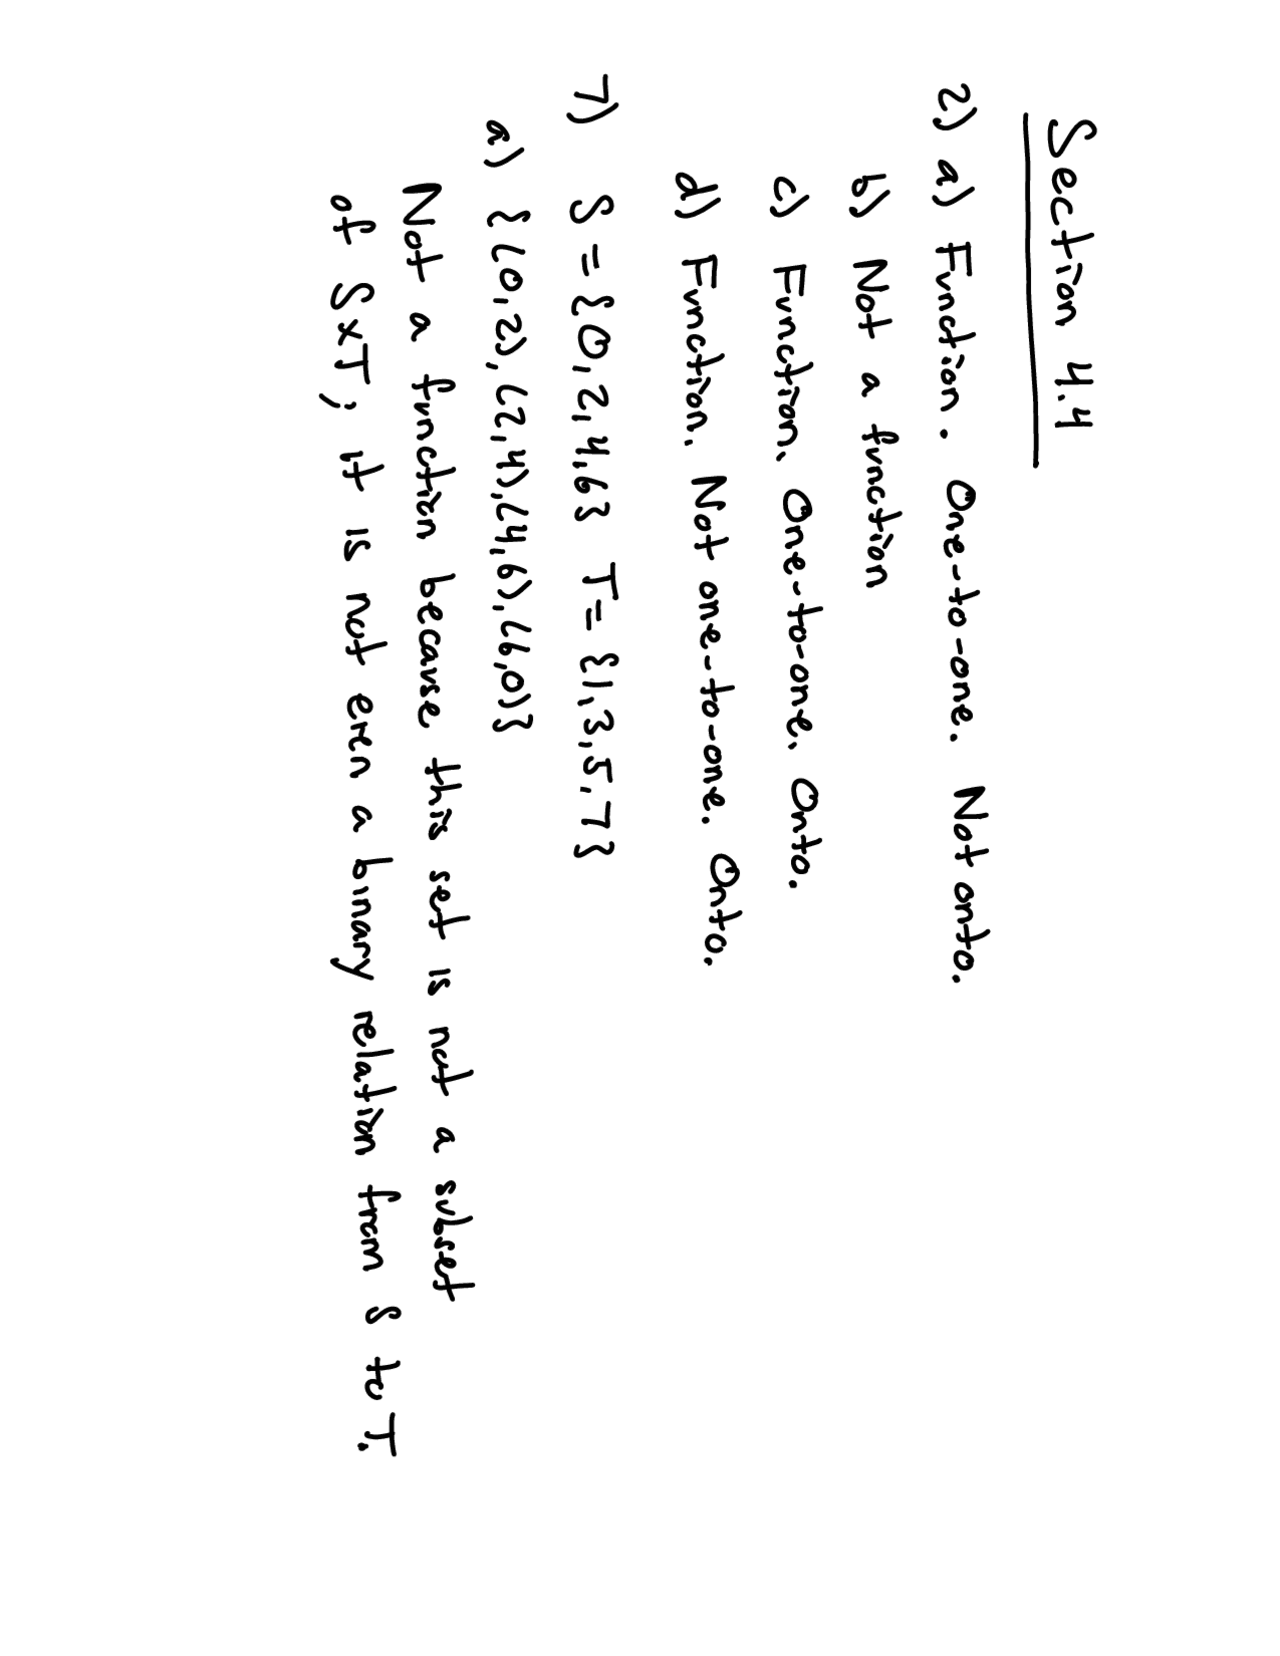 Section 4.4
2) a) Function. One-to-one. Not onto.
b) Not a function
c) Function. One-to-one. Onto.
d) Function. Not one-to-one. Onto.
7) S = {0,2,4,6} T = {1,3,5,7}
a) {(0,2),(2,4),(4,6),(6,0)}
Not a function because this set is not a subset
of S×T; it is not even a binary relation from S to T.